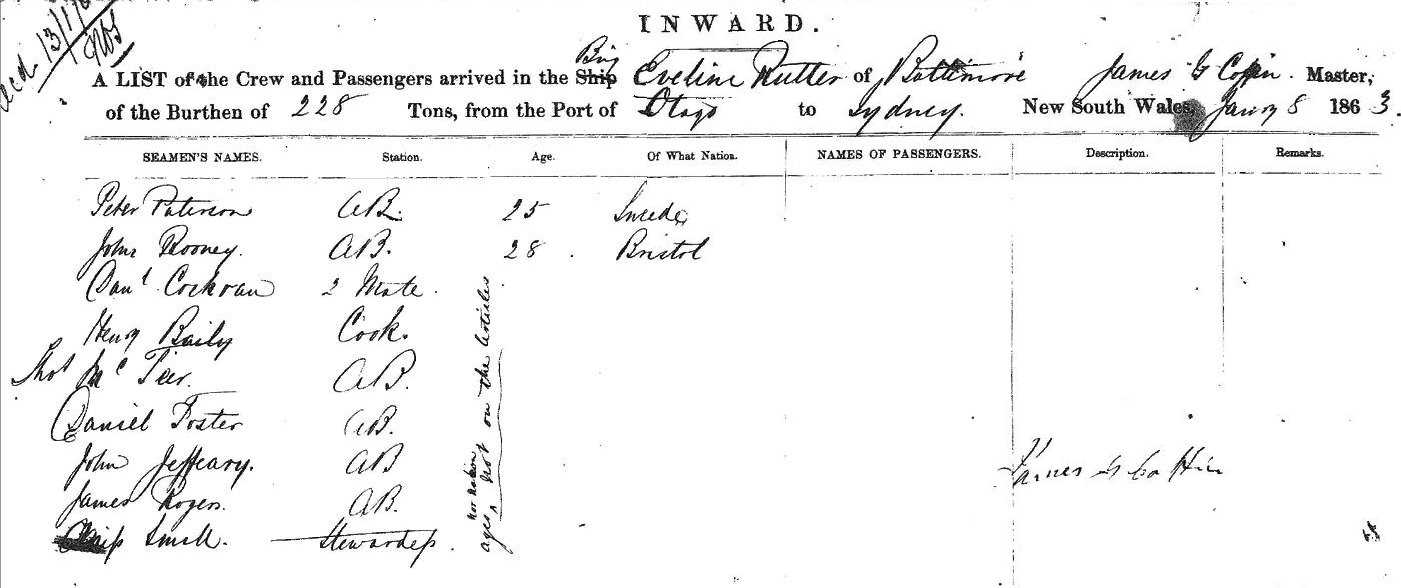 recd 13/1/6
INWARD.
A LIST of the Crew and Passengers arrived in the Ship Brig Eveline Rutter of Baltimore James G Coffin. Master,
of the Burthen of 228 Tons, from the Port of Otago to Sydney. New South Wales, Jany 8 1863.
SEAMEN'S NAMES. Station. Age. Of What Nation. NAMES OF PASSENGERS. Description. Remarks.
Peter Paterson AB. 25 Swede
John Rooney. AB. 28. Bristol
Danl Cockran 2 Mate.
Henry Baily Cook.
Thos McTeer. AB.
Daniel Foster AB.
John Jefferay. AB
James Rogers. AB.
Small. Stewardess.
ages, nor nation not on the Articles
James G Coffin